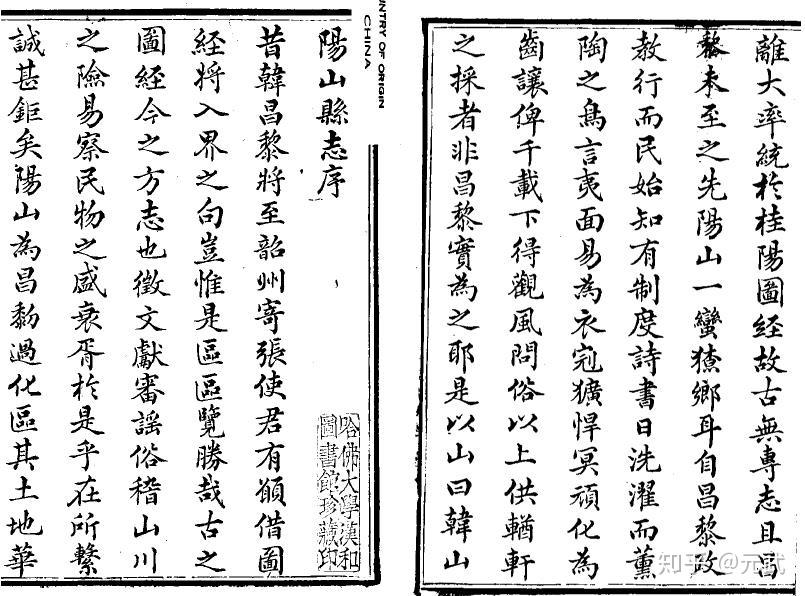 陽山縣志序
昔韓昌黎將至韶州寄張使君有願借圖
經將入界之句豈惟是區區覽勝哉古之
圖經今之方志也徵文獻審謠俗稽山川
之險易察民物之盛衰胥於是乎在所繫
誠甚鉅矣陽山為昌黎過化區其土地華
離大率統於桂陽圖經故古無專志且昌
黎未至之先陽山一蠻獠鄉耳自昌黎政
教行而民始知有制度詩書日洗濯而薰
陶之鳥言夷面易為衣冠獷悍冥頑化為
齒讓俾千載下得觀風問俗以上供輶軒
之採者非昌黎實為之耶是以山曰韓山
哈佛大學漢和
圖書館珍藏印
NTRY OF ORIGIN
CHINA
知乎